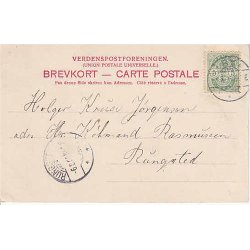 VERDENSPOSTFORENINGEN.
(UNION POSTALE UNIVERSELLE.)
BREVKORT — CARTE POSTALE
Paa denne Side skrives kun Adressen. Côté réservé à l'adresse.
Holger Kruse Jørgensen
adr. Hr. Købmand Rasmussen
Rungsted